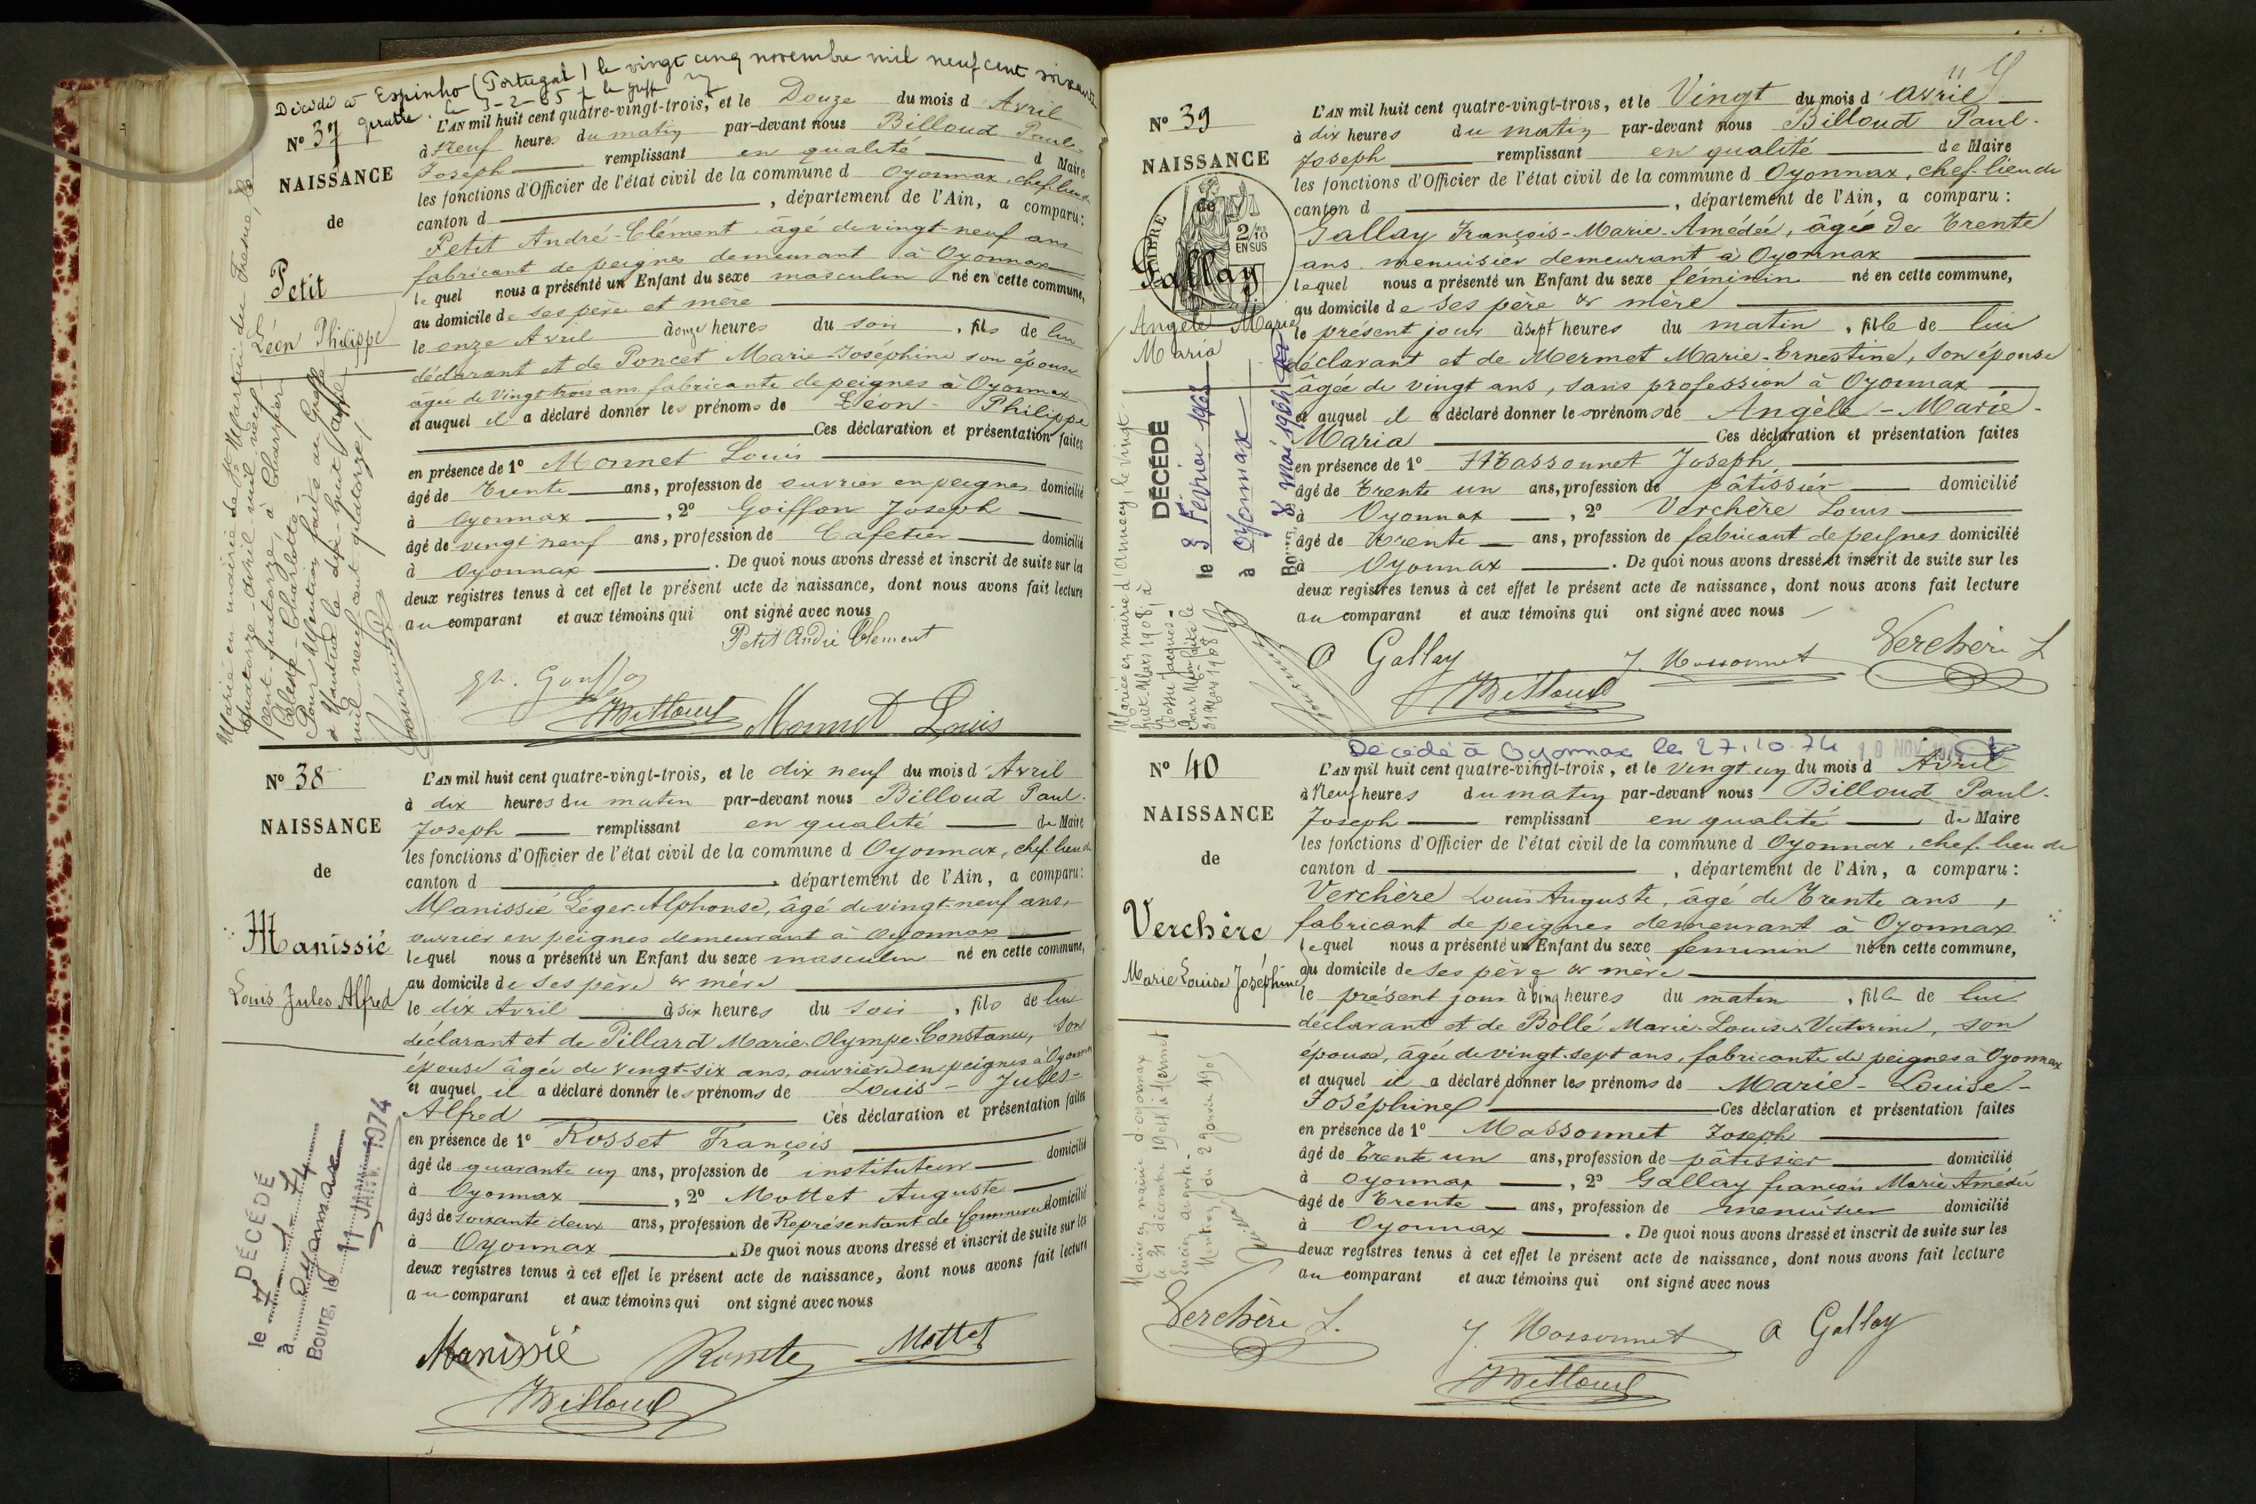 Décédé à Espinho (Portugal) le vingt cinq novembre mil neuf cent soixante
quatre. Le 3-2-65 le greff
N° 37
NAISSANCE
de
Petit
Léon Philippe
L'AN mil huit cent quatre-vingt-trois, et le Douze du mois d'Avril
à Neuf heures du matin par-devant nous Billoud Paul-
Joseph remplissant en qualité d Maire
les fonctions d'Officier de l'état civil de la commune d Oyonnax, chef-lieu de
canton d , département de l'Ain, a comparu:
Petit André-Clément âgé de vingt-neuf ans
fabricant de peignes demeurant à Oyonnax
lequel nous a présenté un Enfant du sexe masculin né en cette commune,
au domicile de ses père et mère
le onze Avril à onze heures du soir, fils de lui
déclarant et de Poncet Marie-Joséphine son épouse
âgée de Vingt trois ans fabricante de peignes à Oyonnax
et auquel il a déclaré donner les prénoms de Léon-Philippe
Ces déclaration et présentation faites
en présence de 1° Monnet Louis
âgé de Trente ans, profession de ouvrier en peignes domicilié
à Oyonnax, 2° Goiffon Joseph
âgé de vingt neuf ans, profession de Cafetier domicilié
à Oyonnax. De quoi nous avons dressé et inscrit de suite sur les
deux registres tenus à cet effet le présent acte de naissance, dont nous avons fait lecture
au comparant et aux témoins qui ont signé avec nous
Petit André Clément
JBilloud Monnet Louis
Marié en mairie de St Martin du Fresne, le
quatorze avril mil neuf
cent quatorze, à Charpy
Céleste-Charlotte
Pour Mention faite au Greffe
à Nantua le dix-huit
mil neuf cent quatorze
N° 38
NAISSANCE
de
Manissié
Louis Jules Alfred
L'AN mil huit cent quatre-vingt-trois, et le dix neuf du mois d'Avril
à dix heures du matin par-devant nous Billoud Paul-
Joseph remplissant en qualité de Maire
les fonctions d'Officier de l'état civil de la commune d Oyonnax, chef-lieu de
canton d , département de l'Ain, a comparu:
Manissié Léger-Alphonse, âgé de vingt-neuf ans,
ouvrier en peignes demeurant à Oyonnax
lequel nous a présenté un Enfant du sexe masculin né en cette commune,
au domicile de ses père & mère
le dix Avril à six heures du soir, fils de lui
déclarant et de Pillard Marie-Olympe-Constance, son
épouse âgée de vingt-six ans, ouvrière en peignes à Oyonnax
et auquel il a déclaré donner les prénoms de Louis-Jules-
Alfred Ces déclaration et présentation faites
en présence de 1° Rosset François
âgé de quarante un ans, profession de instituteur domicilié
à Oyonnax, 2° Mottet Auguste
âgé de soixante deux ans, profession de Représentant de Commerce domicilié
à Oyonnax. De quoi nous avons dressé et inscrit de suite sur les
deux registres tenus à cet effet le présent acte de naissance, dont nous avons fait lecture
au comparant et aux témoins qui ont signé avec nous
Manissié Mottet
JBilloud
DÉCÉDÉ
le 7-1-74
à Oyonnax
Bourg, le 11 JANV. 1974
11
N° 39
NAISSANCE
de
TIMBRE
2/10 EN SUS
Gallay
Angèle Marie
Maria
L'AN mil huit cent quatre-vingt-trois, et le Vingt du mois d'avril
à dix heures du matin par-devant nous Billoud Paul-
Joseph remplissant en qualité de Maire
les fonctions d'Officier de l'état civil de la commune d Oyonnax, chef-lieu de
canton d , département de l'Ain, a comparu:
Gallay François-Marie-Amédée, âgé de Trente
ans menuisier demeurant à Oyonnax
lequel nous a présenté un Enfant du sexe féminin né en cette commune,
au domicile de ses père & mère
le présent jour à sept heures du matin, fille de lui
déclarant et de Mermet Marie-Ernestine, son épouse
âgée de vingt ans, sans profession à Oyonnax
et auquel il a déclaré donner les prénoms de Angèle-Marie-
Maria Ces déclaration et présentation faites
en présence de 1° Massonnet Joseph,
âgé de Trente un ans, profession de pâtissier domicilié
à Oyonnax, 2° Verchère Louis
âgé de Trente ans, profession de fabricant de peignes domicilié
à Oyonnax. De quoi nous avons dressé et inscrit de suite sur les
deux registres tenus à cet effet le présent acte de naissance, dont nous avons fait lecture
au comparant et aux témoins qui ont signé avec nous
A Gallay J. Massonnet Verchère L
JBilloud
DÉCÉDÉ
le 3 Février 1968
à Oyonnax
Bourg, 8 Mai 1968
Mariée en mairie d'Annecy, le vingt
huit Mars 1908, à
Jacques
Pour Mention faite le
31 Mars 1908
Décédé à Oyonnax le 27.10.74
N° 40
NAISSANCE
de
Verchère
Marie Louise Joséphine
L'AN mil huit cent quatre-vingt-trois, et le vingt un du mois d Avril
à Neuf heures du matin par-devant nous Billoud Paul-
Joseph remplissant en qualité de Maire
les fonctions d'Officier de l'état civil de la commune d Oyonnax, chef-lieu de
canton d , département de l'Ain, a comparu:
Verchère Louis Auguste, âgé de Trente ans,
fabricant de peignes demeurant à Oyonnax
lequel nous a présenté un Enfant du sexe feminin né en cette commune,
au domicile de ses père & mère
le présent jour à cinq heures du matin, fille de lui
déclarant et de Bollé Marie-Louise-Victorine, son
épouse, âgée de vingt-sept ans, fabricante de peignes à Oyonnax
et auquel il a déclaré donner les prénoms de Marie-Louise-
Joséphine Ces déclaration et présentation faites
en présence de 1° Massonnet Joseph
âgé de Trente un ans, profession de pâtissier domicilié
à Oyonnax, 2° Gallay françois Marie Amédée
âgé de Trente ans, profession de menuisier domicilié
à Oyonnax. De quoi nous avons dressé et inscrit de suite sur les
deux registres tenus à cet effet le présent acte de naissance, dont nous avons fait lecture
au comparant et aux témoins qui ont signé avec nous
Verchère L. J. Massonnet A Gallay
JBilloud
Mariée en mairie d'oyonnax
le 31 décembre 1904 à Mermet
Lucien auguste
Mention du 2 Janvier 1905